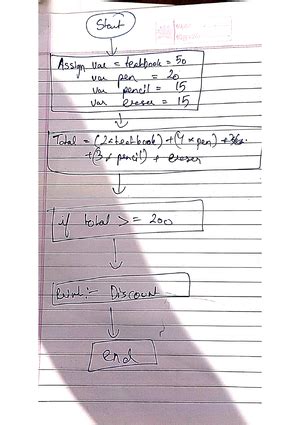 Start
Assign var = textbook = 50
var pen = 20
var pencil = 15
var eraser = 15
Total = (2 x textbook) + (4 x pen) +
+ (3 x pencil) + eraser
if total >= 200
Print :- Discount
end